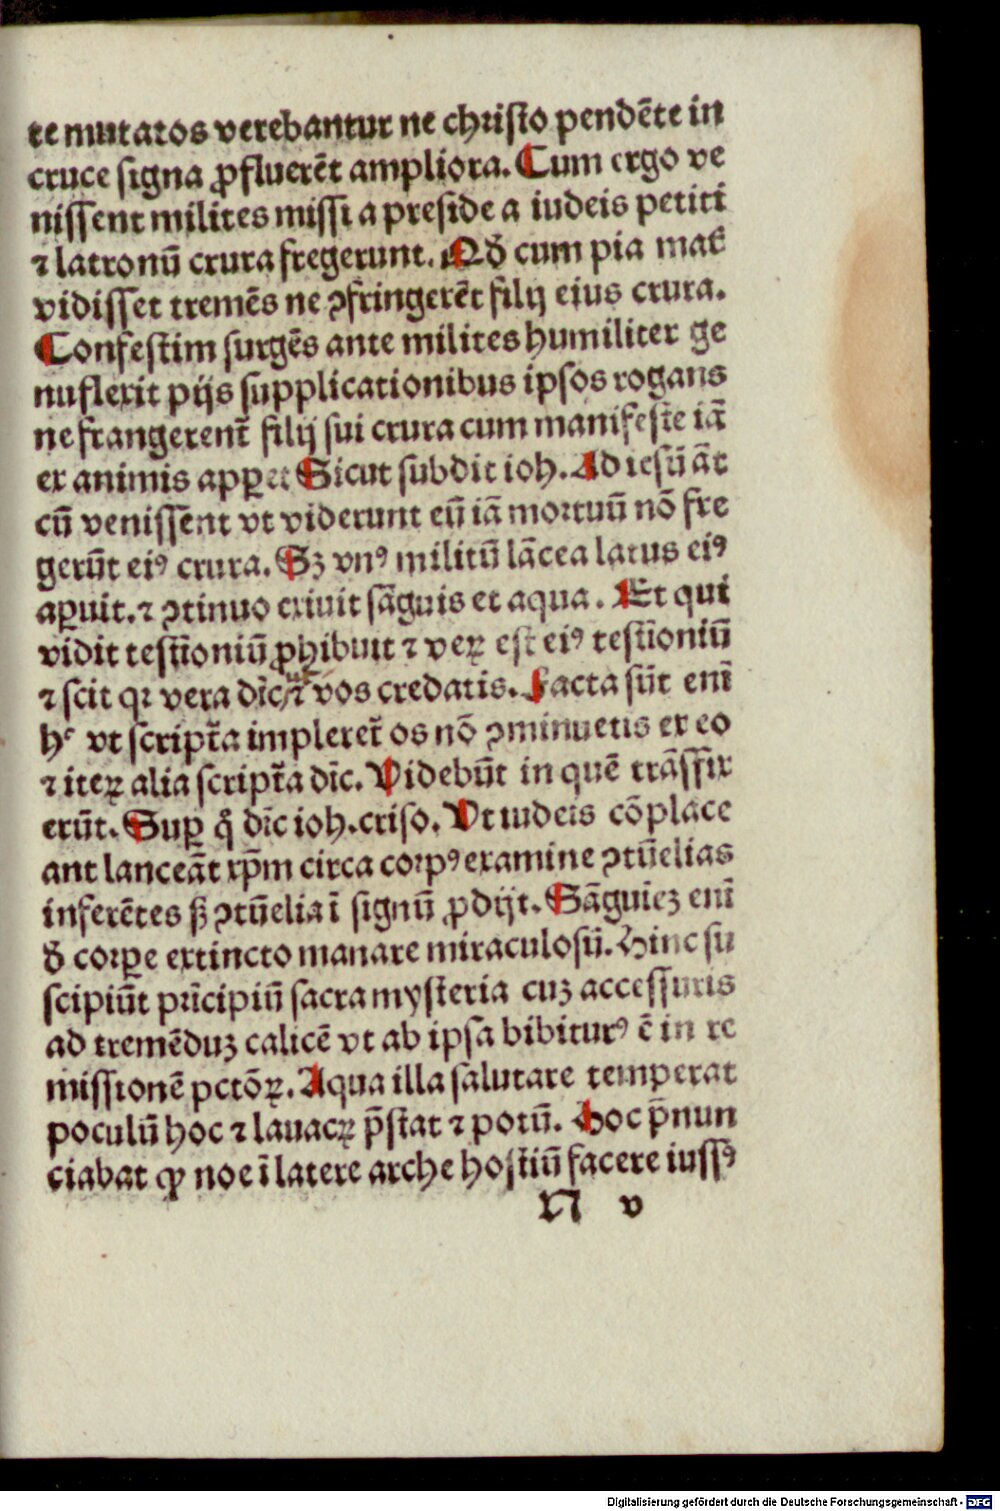 te mutatos verebantur ne christo pendēte in
cruce signa ꝓfluerēt ampliora. Cum ergo ve
nissent milites missi a preside a iudeis petiti
⁊ latronū crura fregerunt. Qđ cum pia mat̄
vidisset tremēs ne ꝯfringerēt filij eius crura.
Confestim surgēs ante milites humiliter ge
nuflexit pijs supplicationibus ipsos rogans
ne frangerent̄ filij sui crura cum manifeste iā
ex animis apꝑet Sicut subdit ioh. Ad iesū āt
cū venissent vt viderunt eū iā mortuū nō fre
gerūt eiꝰ crura. Sꝫ vnꝰ militū lācea latus eiꝰ
aꝑuit. ⁊ ꝯtinuo exiuit sāguis et aqua. Et qui
vidit testīoniū ꝓhibuit ⁊ veꝝ est eiꝰ testīoniū
⁊ scit qꝛ vera dīc ut ⁊ vos credatis. Facta sūt eni̅
hͨ vt script̄a impleret̄ os nō ꝯminuetis ex eo
⁊ iteꝝ alia script̄a dīc. Videbūt in quē trāsfix
erūt. Suꝑ q̊ dīc ioh. criso. Vt iudeis cōplace
ant lanceāt xp̄m circa corpꝰ examine ꝯtūelias
inferētes sꝫ ꝯtūelia ī signū ꝓdijt. Sāguīeꝫ eni̅
đ corꝑe extincto manare miraculosū. Hinc su
scipiūt prīcipiū sacra mysteria cuꝫ accessuris
ad tremēduꝫ calicē vt ab ipsa bibiturꝰ ē in re
missionē pctōꝝ. Aqua illa salutare temperat
poculū hoc ⁊ lauacꝝ p̄stat ⁊ potū. Hoc p̄nun
ciabat ꝙ noe ī latere arche hostiū facere iussꝰ
N v
Digitalisierung gefördert durch die Deutsche Forschungsgemeinschaft - DFG